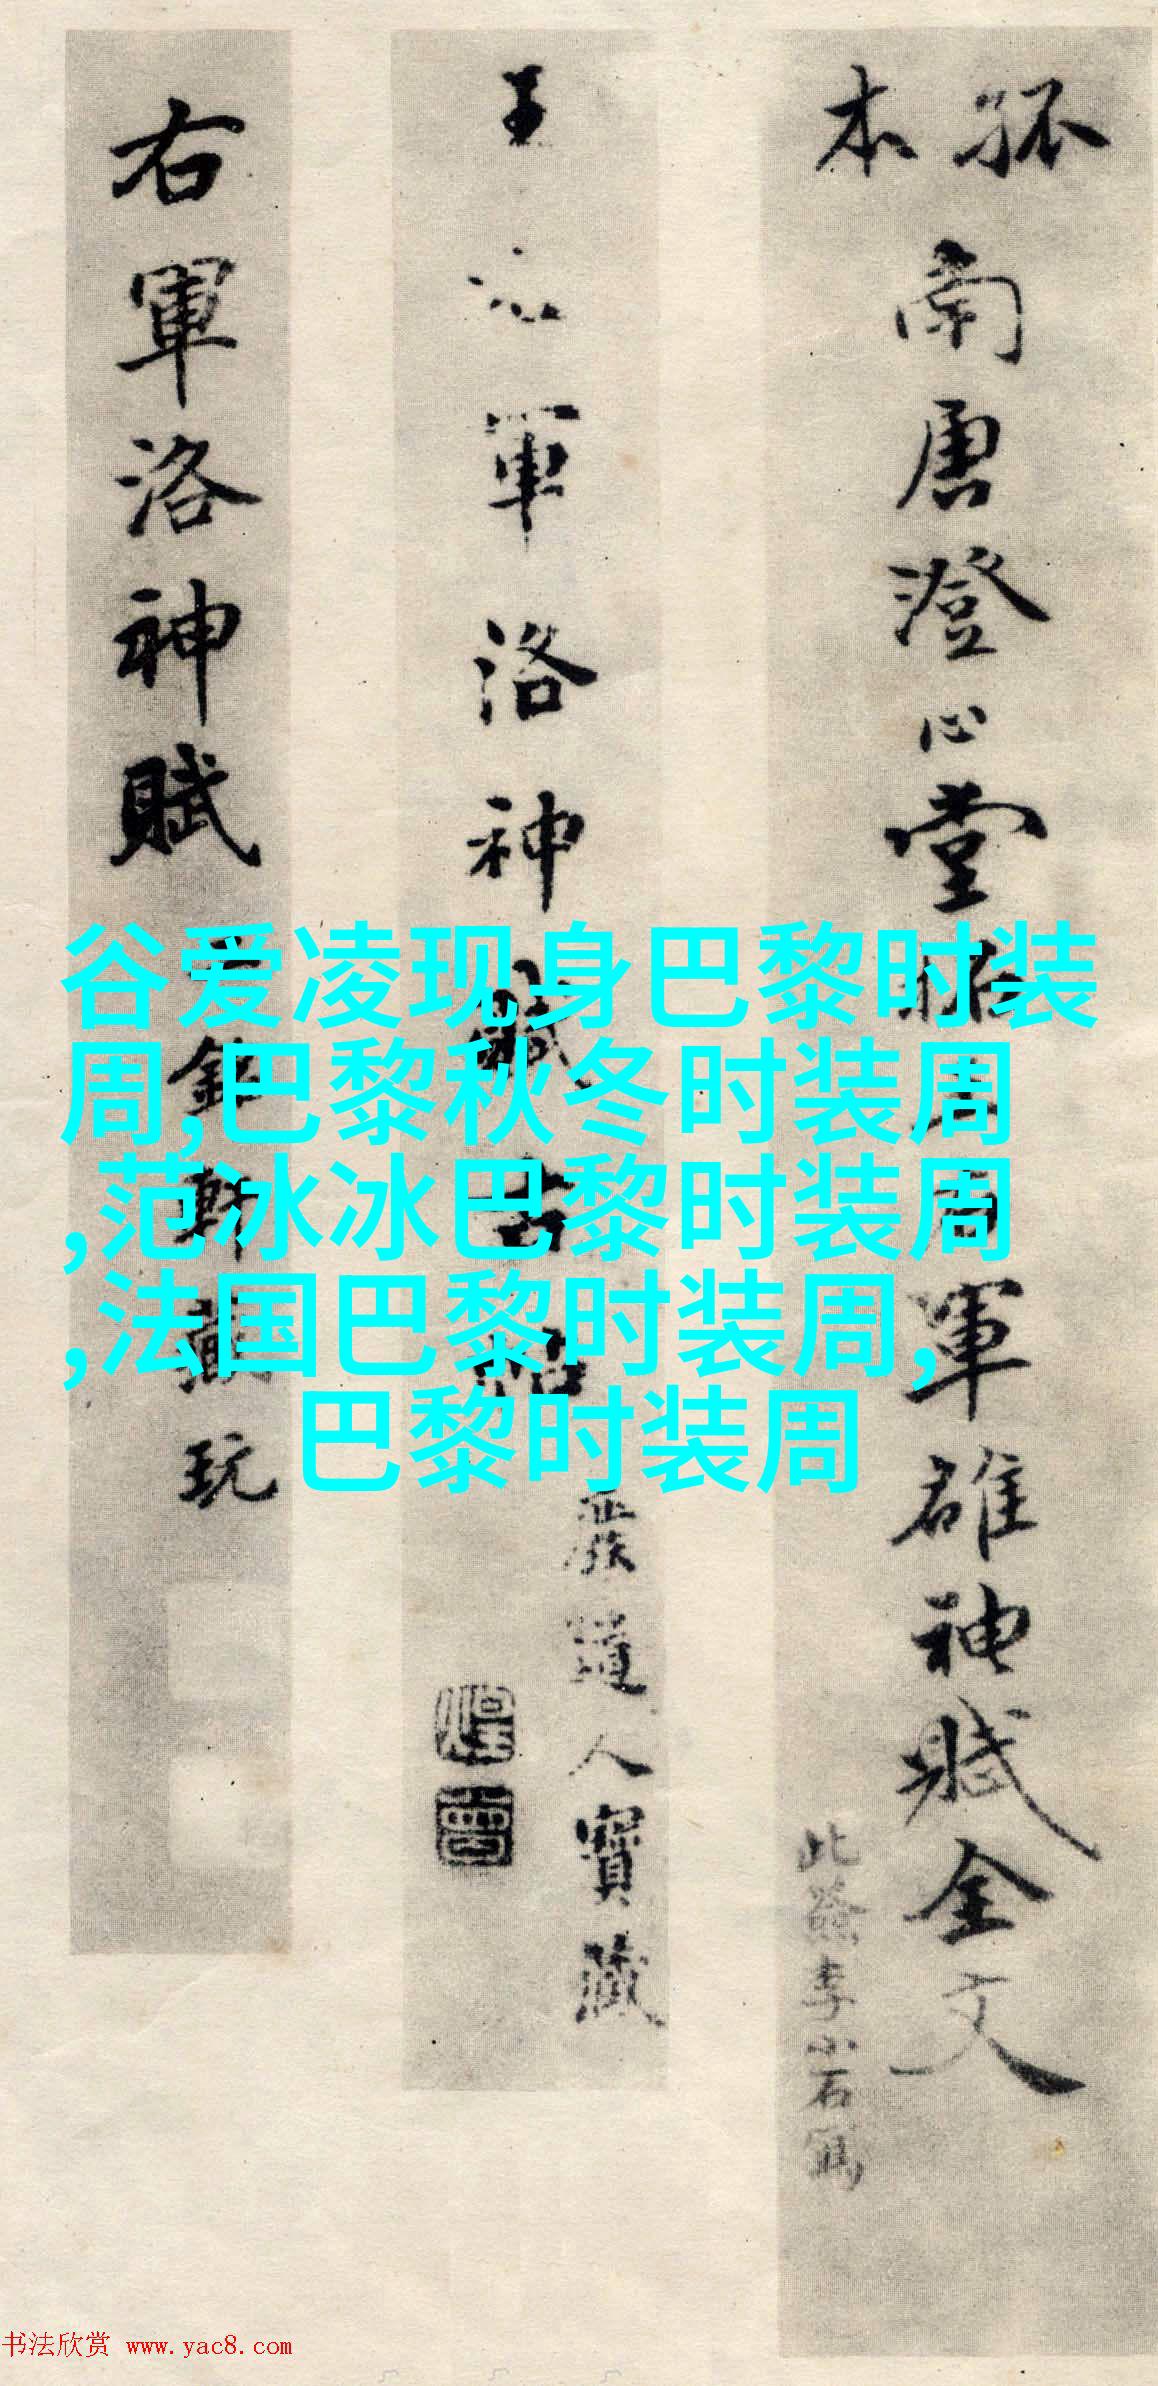 孤本
南唐澄心堂
軍雄神賦全文
此
李小石
王
軍洛神賦
道人寶藏
右軍洛神賦
玩
谷爱凌现身巴黎时装
周,巴黎秋冬时装周
,范冰冰巴黎时装周
,法国巴黎时装周,
巴黎时装周
书法欣赏 www.yac8.com